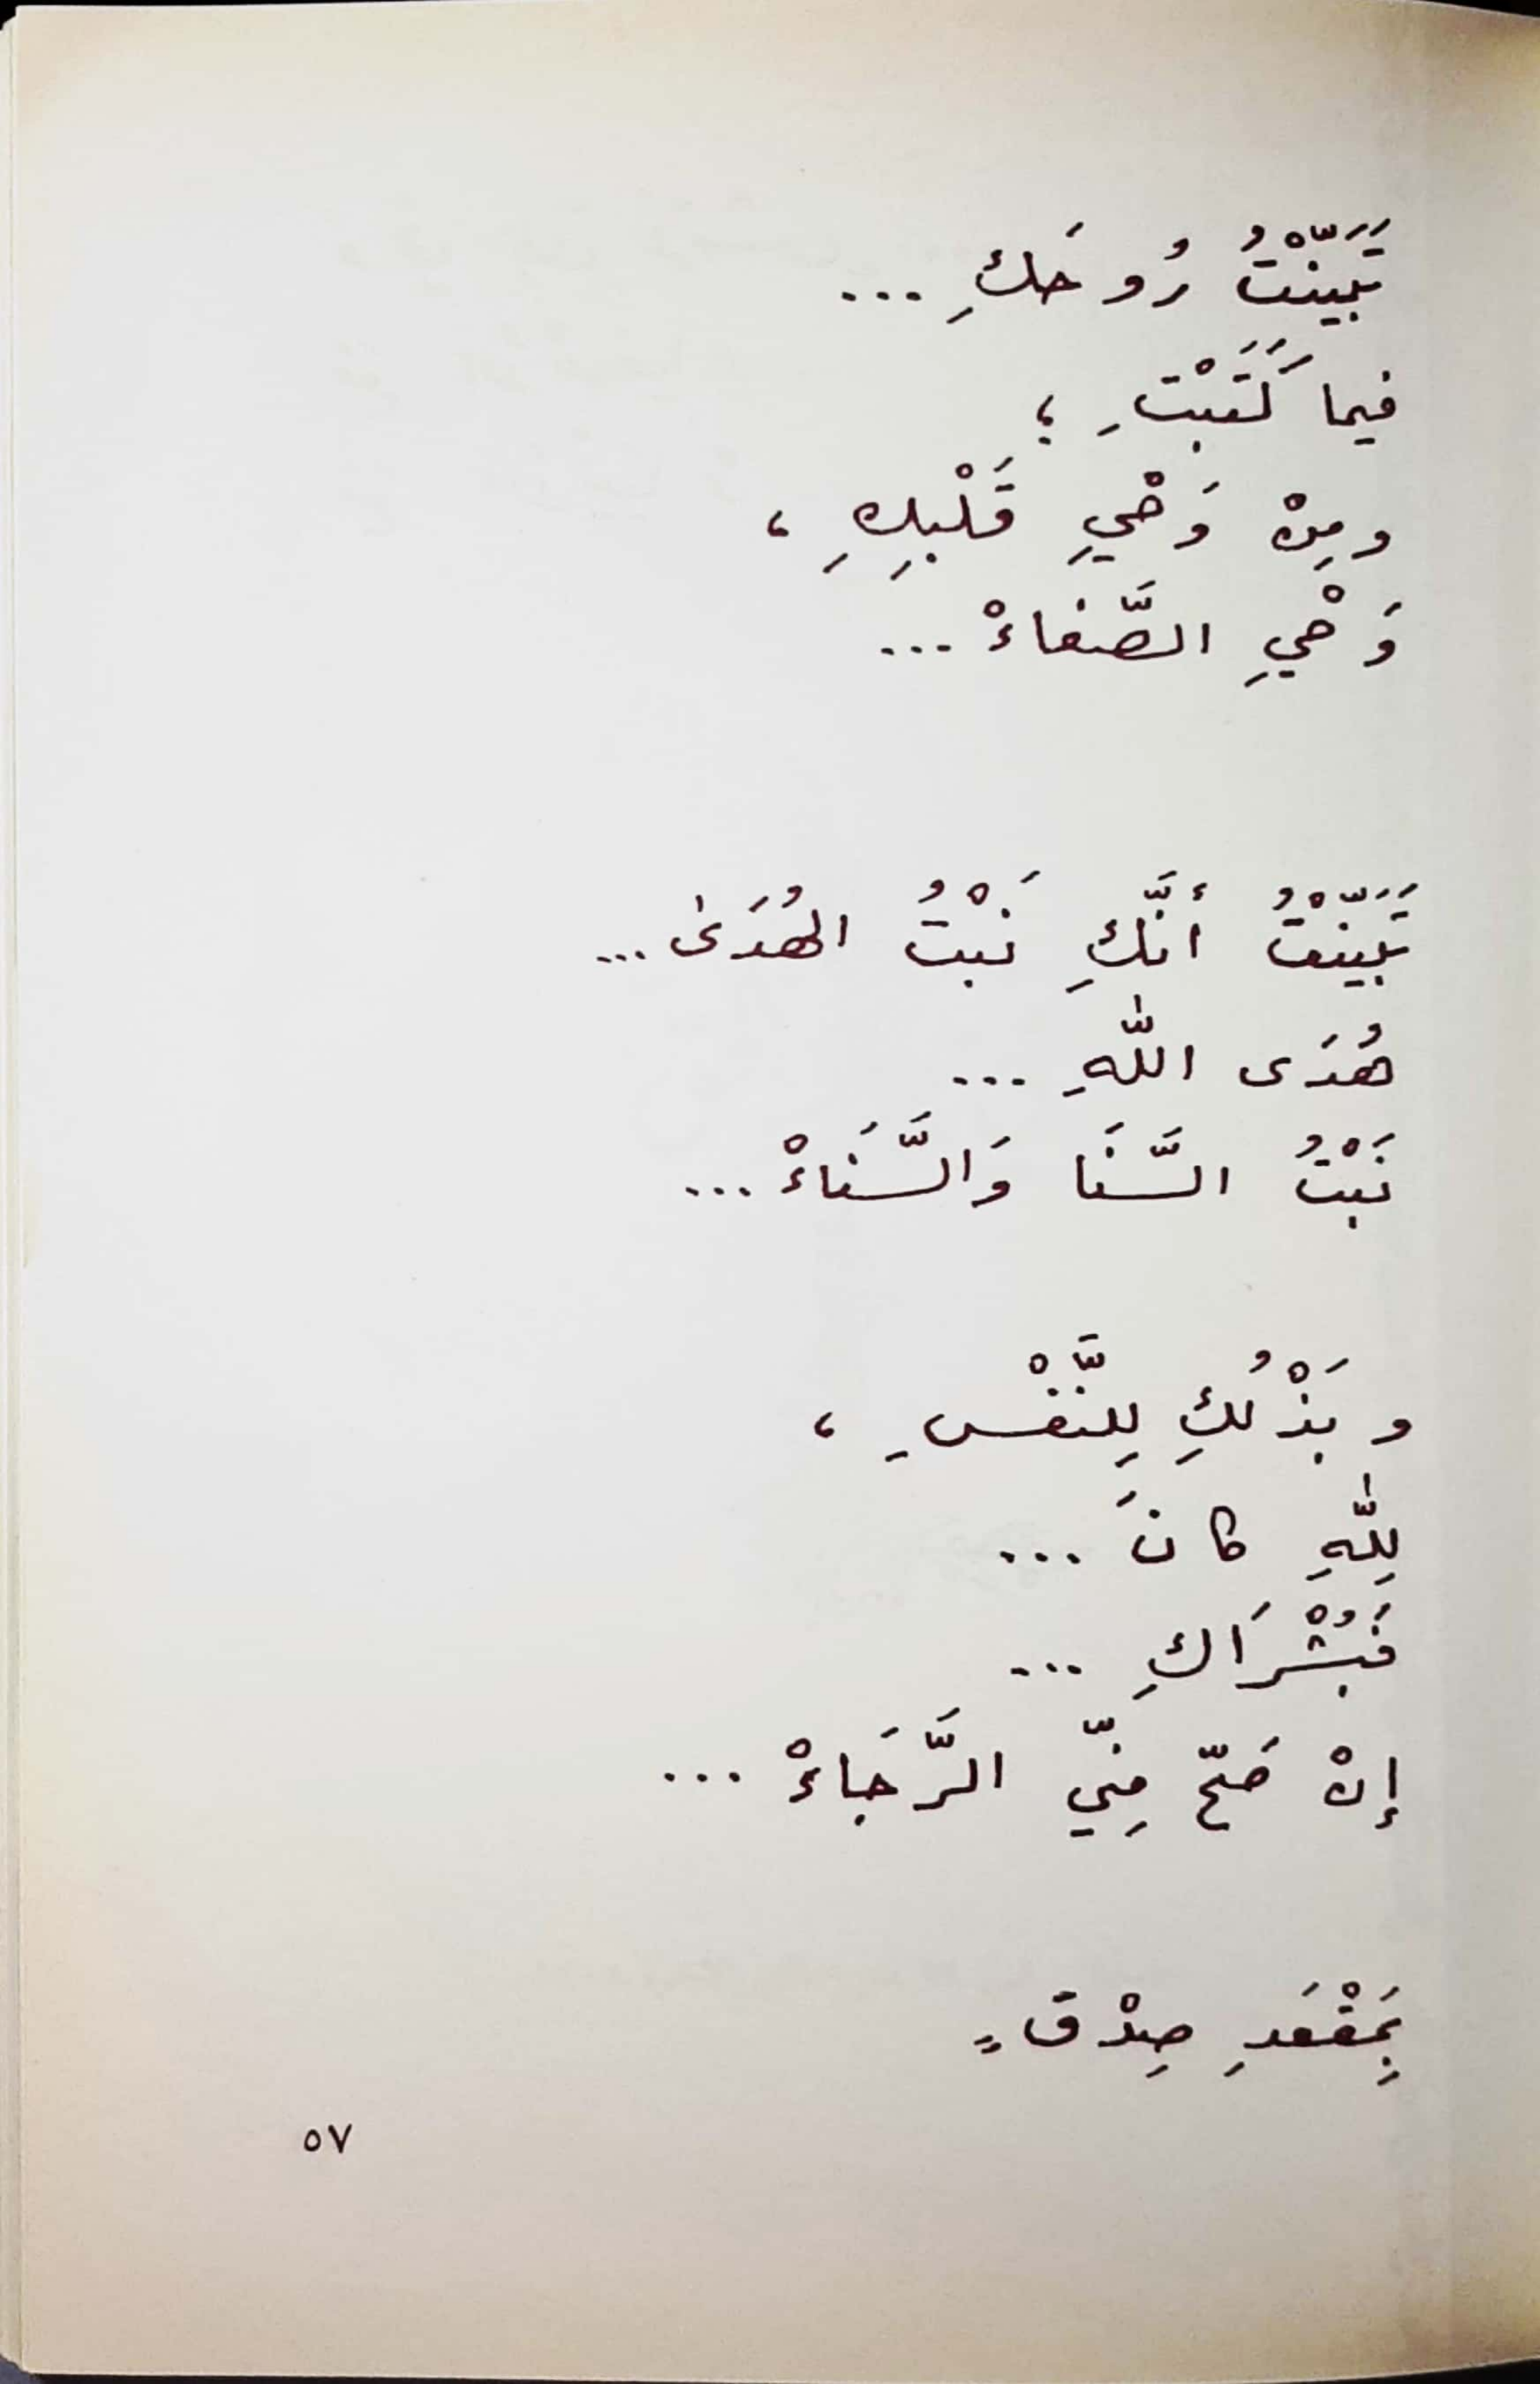 تَبَيَّنْتُ رُوحَكِ ...
فيما كَتَبْتِ ؛
ومِنْ وَحْيِ قَلْبِكِ ،
وَحْيِ الصَّفاءْ ...
تَبَيَّنْتُ أنَّكِ نَبْتُ الهُدَىٰ ...
هُدَى اللّٰهِ ...
نَبْتُ السَّنَا وَالسَّنَاءْ ...
وبَذْلُكِ لِلنَّفْسِ ،
لِلّٰهِ كانَ ...
فَبُشْرَاكِ ...
إنْ صَحَّ مِنِّي الرَّجَاءْ ...
بِمَقْعَدِ صِدْقٍ
٥٧